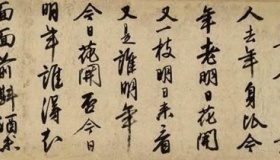 人去年身比今
年老明日花開
又一枝明日来看
又是誰明年
今日花開否今日
明年誰得知
面面前斟酒